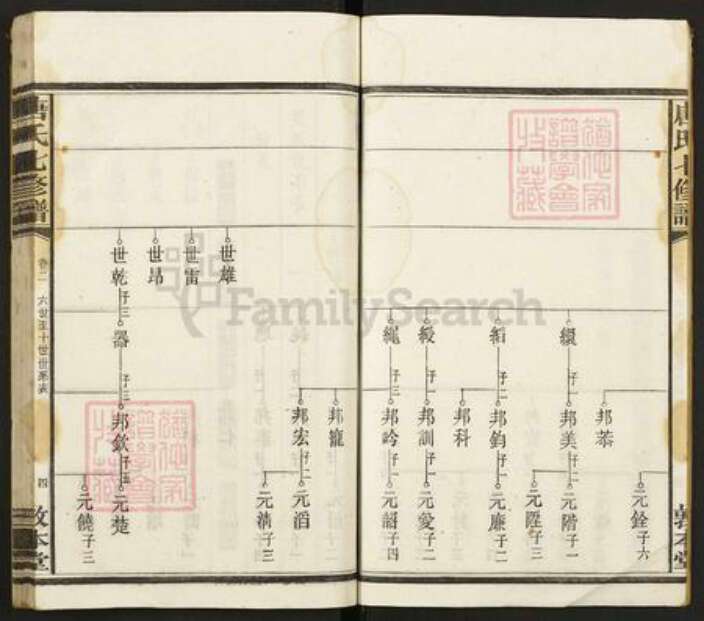 唐氏七修譜
敦本堂
元銓子六
邦恭
綴子一
邦美子一
元階子一
元陞子三
縚子二
邦鈞子一
元廉子二
邦科
緞子一
邦訓子一
元愛子二
繩子三
邦吟子一
元詔子四
邦寵
邦宏子二
元滔
元淸子三
世雄
世雷
世昂
世乾子三
器子三
邦欽子五
元楚
元饒子三
唐氏七修譜
卷二
六世至十世世系表
四
敦本堂
FamilySearch